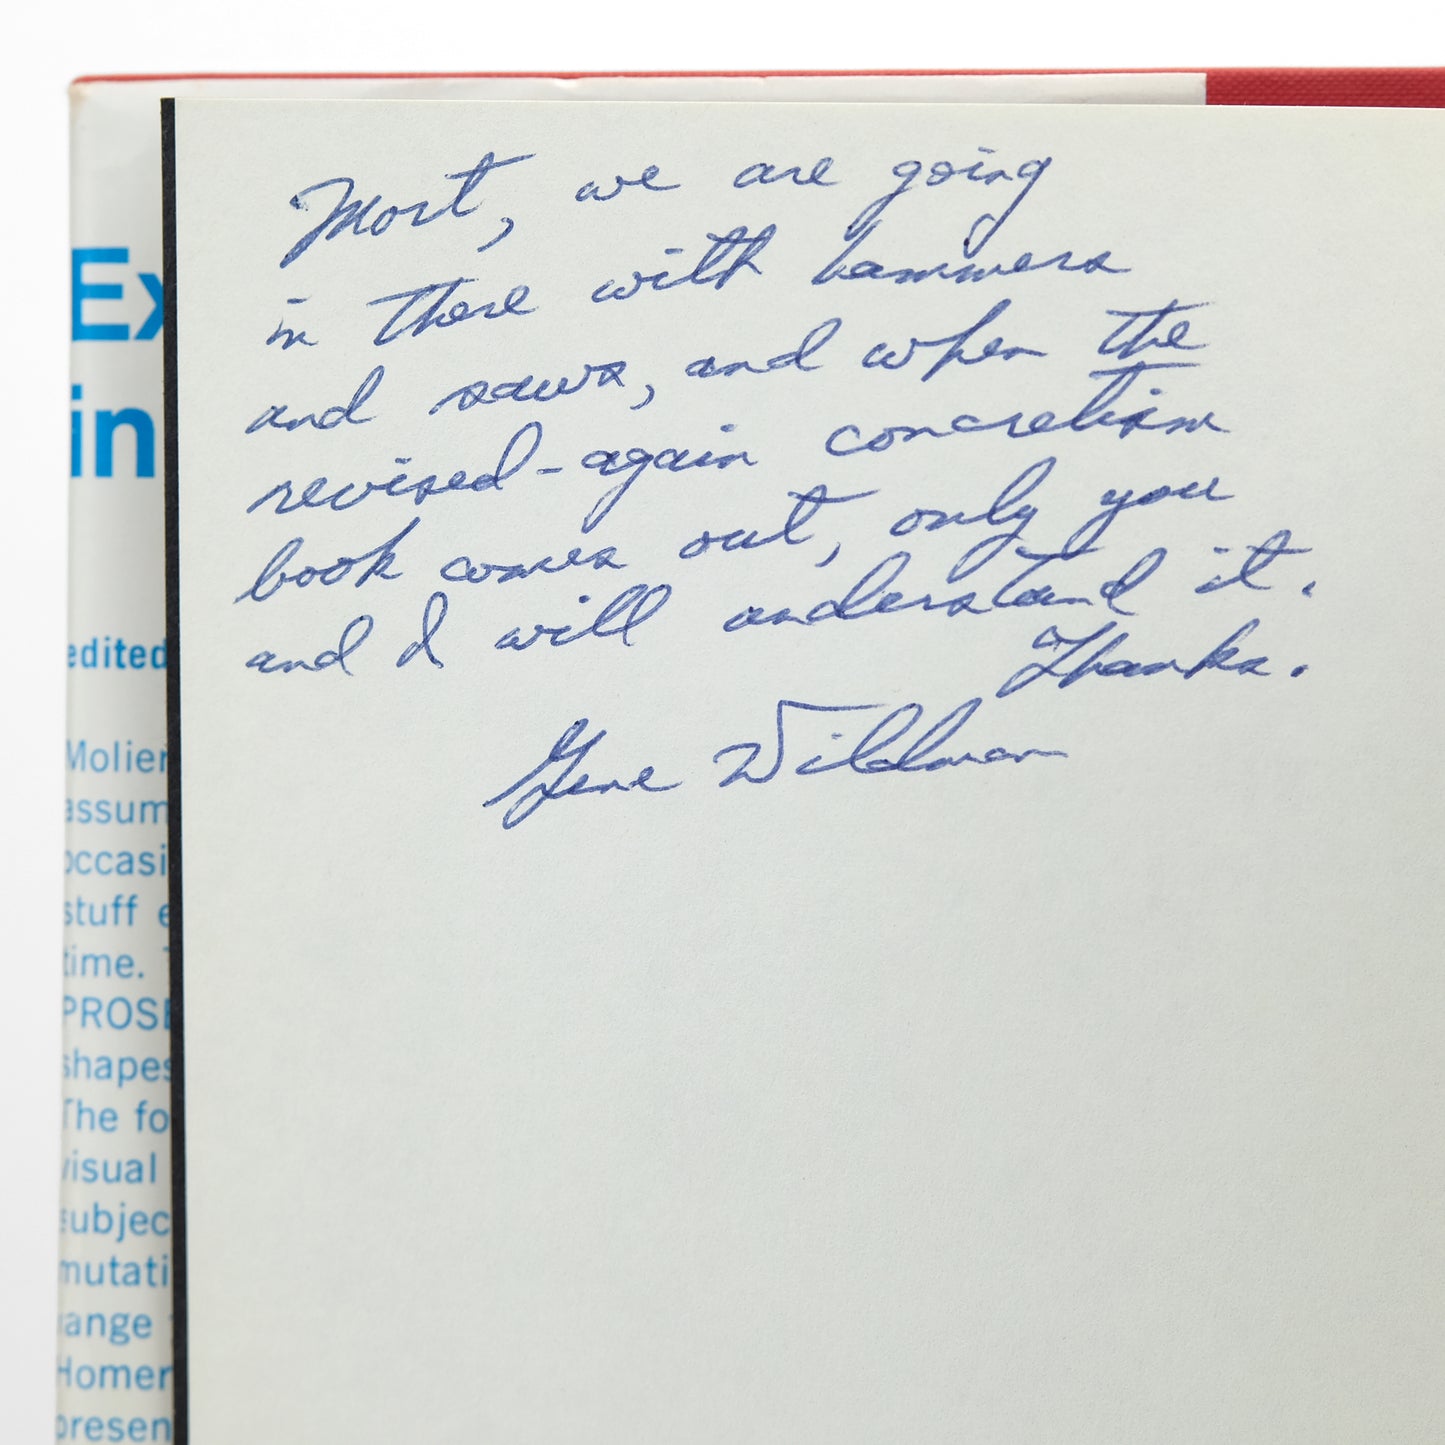 Mort, we are going
in there with hammers
and saws, and when the
revised-again concretism
book comes out, only you
and I will understand it.
Thanks.
Gene Wildman
Ex
in
edited
Molier
assum
occasi
stuff e
time.
PROSE
shapes
The fo
visual
subjec
mutati
range
Homer
presen